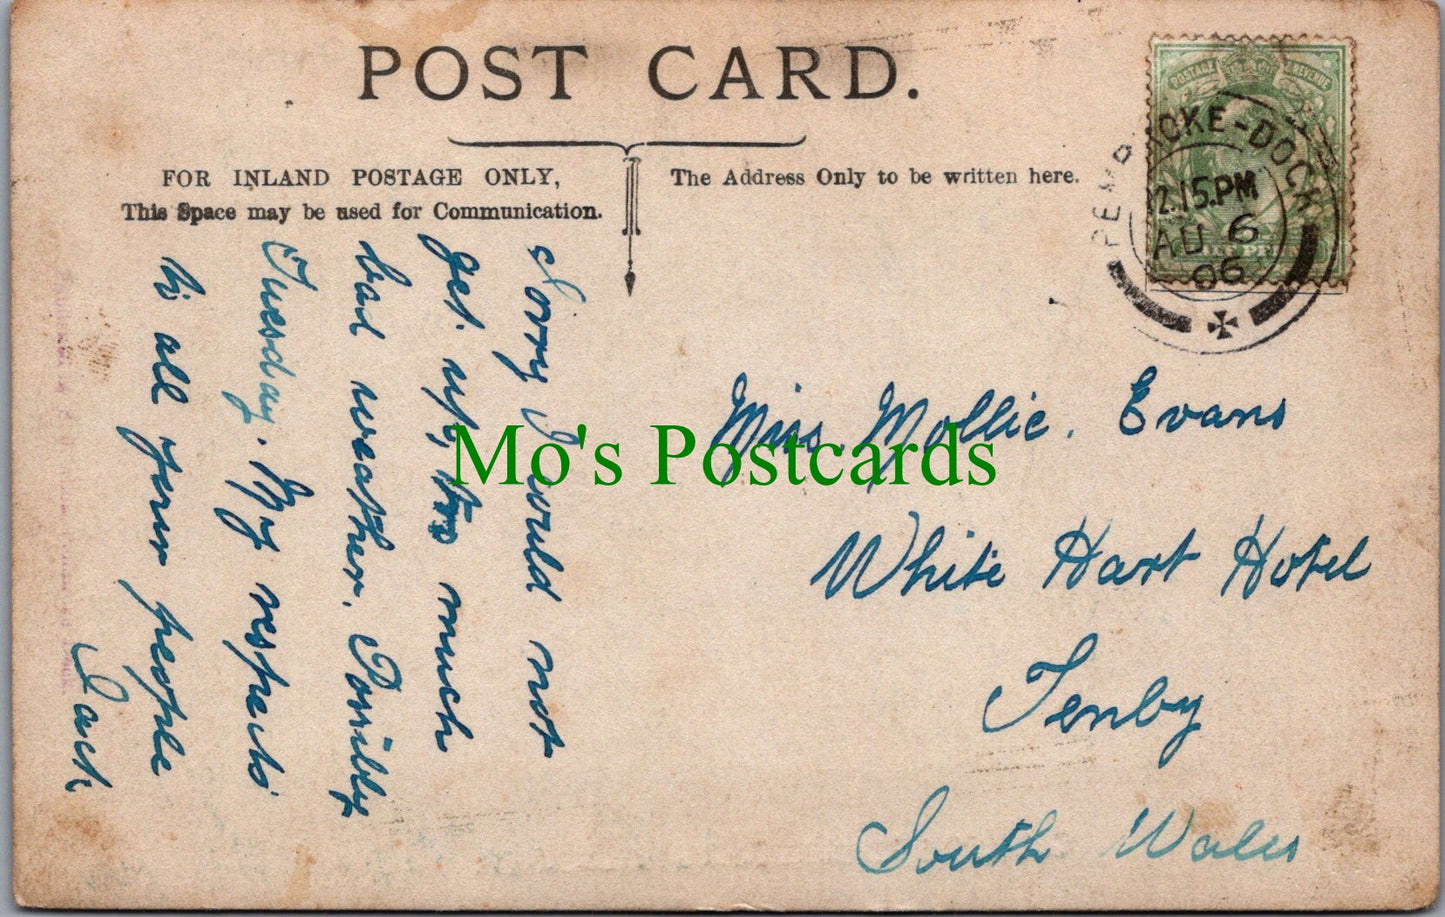 POST CARD.
FOR INLAND POSTAGE ONLY,
This Space may be used for Communication.
The Address Only to be written here.
POSTAGE REVENUE
PEMBROKE-DOCK
2.15.PM
AU 6
06
Sorry I could not
get up, too much
bad weather. Possibly
Tuesday. My respects
to all your people
Jack
Miss. Mollie. Evans
White Hart Hotel
Tenby
South Wales
Mo's Postcards